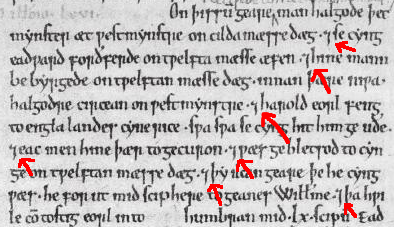 On þissū geare man halgode þet
mynster æt ƿestmynstre on cilda mæsse dæg. ⁊ se cyng
eadƿard forðferde on tƿelfta mæsse æfen. ⁊ hine mann
be byrgede on tƿelftan mæsse dæg. innan þære niƿa
halgodre circean on ƿestmynstre. ⁊ harold eorl feng
to engla landes cyne rice. sƿa sƿa se cyng hit him ge uðe.
⁊ eac men hine þær to gecuron. ⁊ ƿæs ge bletsod to cyn
ge on tƿelftan mæsse dæg. ⁊ þy ilcan geare þe he cyng
ƿæs. he for ut mid sciphere togeanes Willme. ⁊ þa hƿi
le cō tostig eorl into humbran mid .lx. scipū Ead